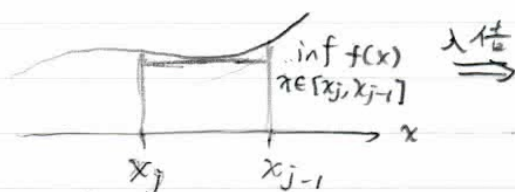 inf f(x)
x∈[xj, xj-1]
x
xj
xj-1